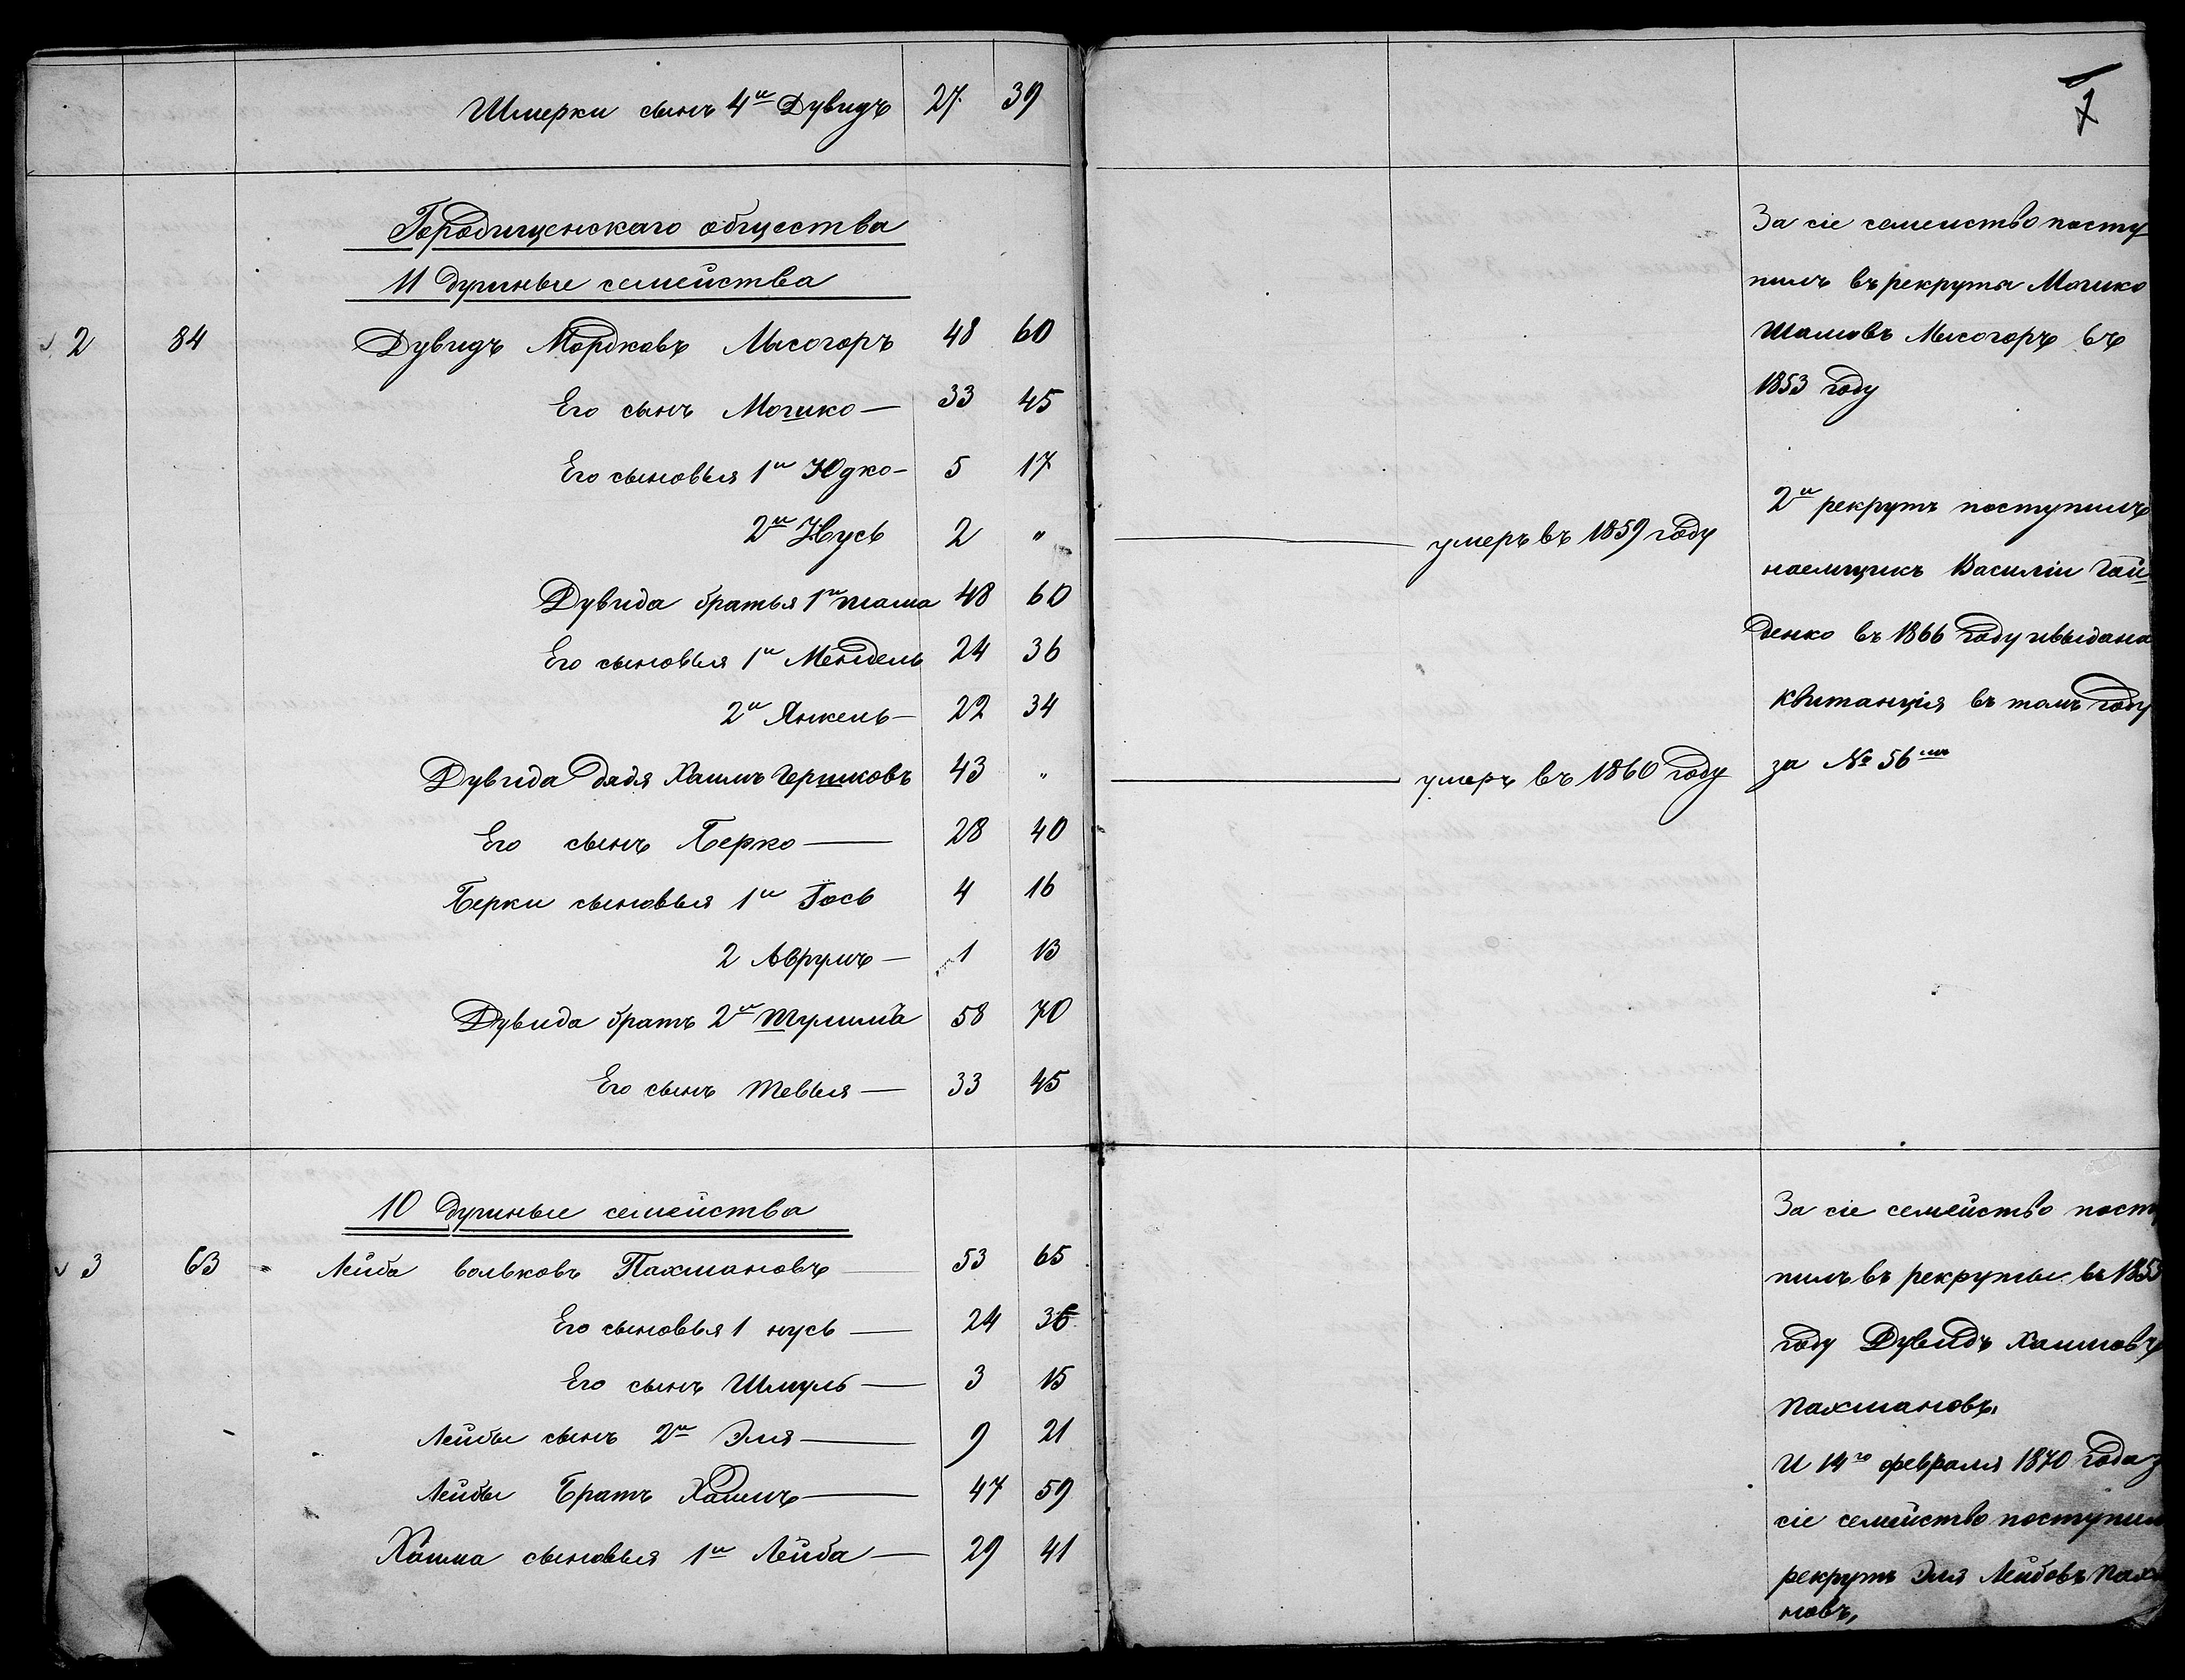 Шмерки сынъ 4й Дувидъ 27 39
7
Городищенскаго общества
11 душные семейства
2 84 Дувидъ Мордковъ Лысогоръ 48 60
Его сынъ Мошко — 33 45
Его сыновья 1й Юдко — 5 17
2й Нусь 2 " — умеръ въ 1859 году
Дувида братья 1й Шама 48 60
Его сыновья 1й Мендель 24 36
2й Янкель — 22 34
Дувида дядя Хаимъ Гершковъ 43 " — умеръ въ 1860 году
Его сынъ Берко — 28 40
Берки сыновья 1й Іось 4 16
2 Аврумъ — 1 13
Дувида братъ 2й 58 70
Его сынъ Тевья — 33 45
За сіе семейство посту
пилъ въ рекруты Мошко
Шамовъ Лысогоръ въ
1853 году
2й рекрутъ поступилъ
наемщикъ Василій Гай
денко въ 1866 году и выдана
квитанція въ томъ году
за № 56мъ
10 душные семейства
3 63 Лейба Вольковъ Пахмановъ — 53 65
Его сыновья 1 Нусь — 24 36
Его сынъ Шмуль — 3 15
Лейбы сынъ 2й Эля — 9 21
Лейбы братъ Хаимъ — 47 59
Хаима сыновья 1й Лейба — 29 41
За сіе семейство посту
пилъ въ рекруты въ 1853
году Дувидъ Хаимовъ
Пахмановъ.
И 14го февраля 1870 года з
сіе семейство поступил
рекрутъ Эля Лейбовъ Пахм
новъ,